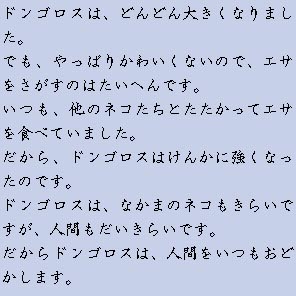 ドンゴロスは、どんどん大きくなりまし
た。
でも、やっぱりかわいくないので、エサ
をさがすのはたいへんです。
いつも、他のネコたちとたたかってエサ
を食べていました。
だから、ドンゴロスはけんかに強くなっ
たのです。
ドンゴロスは、なかまのネコもきらいで
すが、人間もだいきらいです。
だからドンゴロスは、人間をいつもおど
かします。